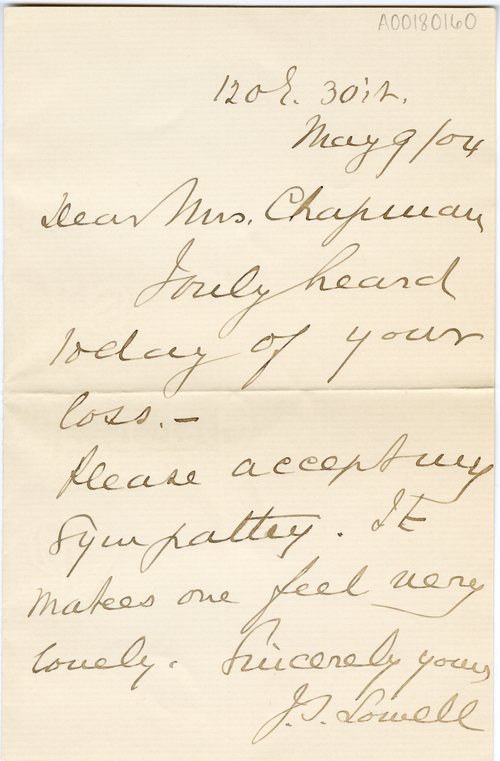 A00180160
120 E. 30 st.
May 9/04
Dear Mrs. Chapman
I only heard
today of your
loss. –
Please accept my
sympathy. It
makes one feel very
lonely. Sincerely yours
J. S. Lowell